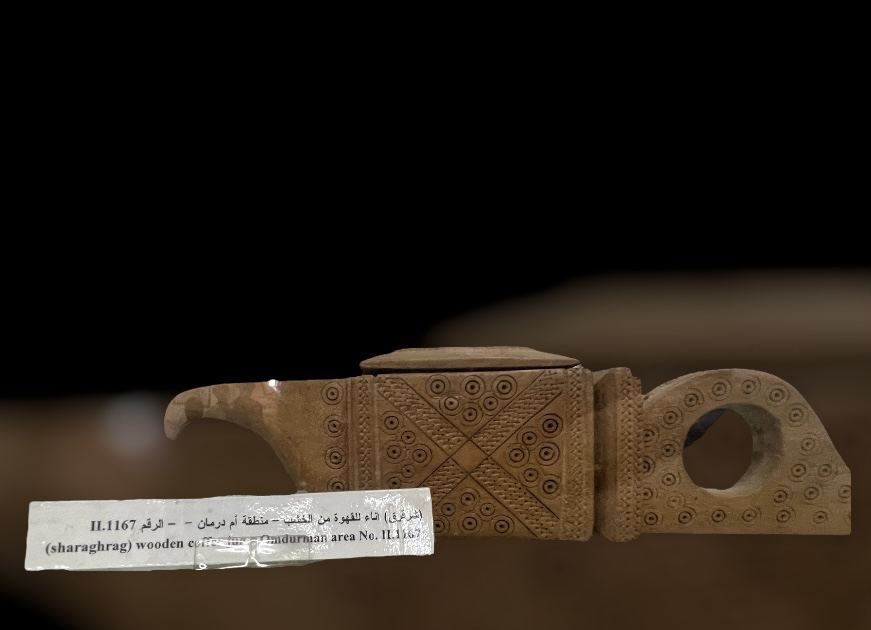 (شرغرق) اناء للقهوة من الخشب – منطقة أم درمان – – الرقم II.1167
(sharaghrag) wooden Omdurman area No. II.1167